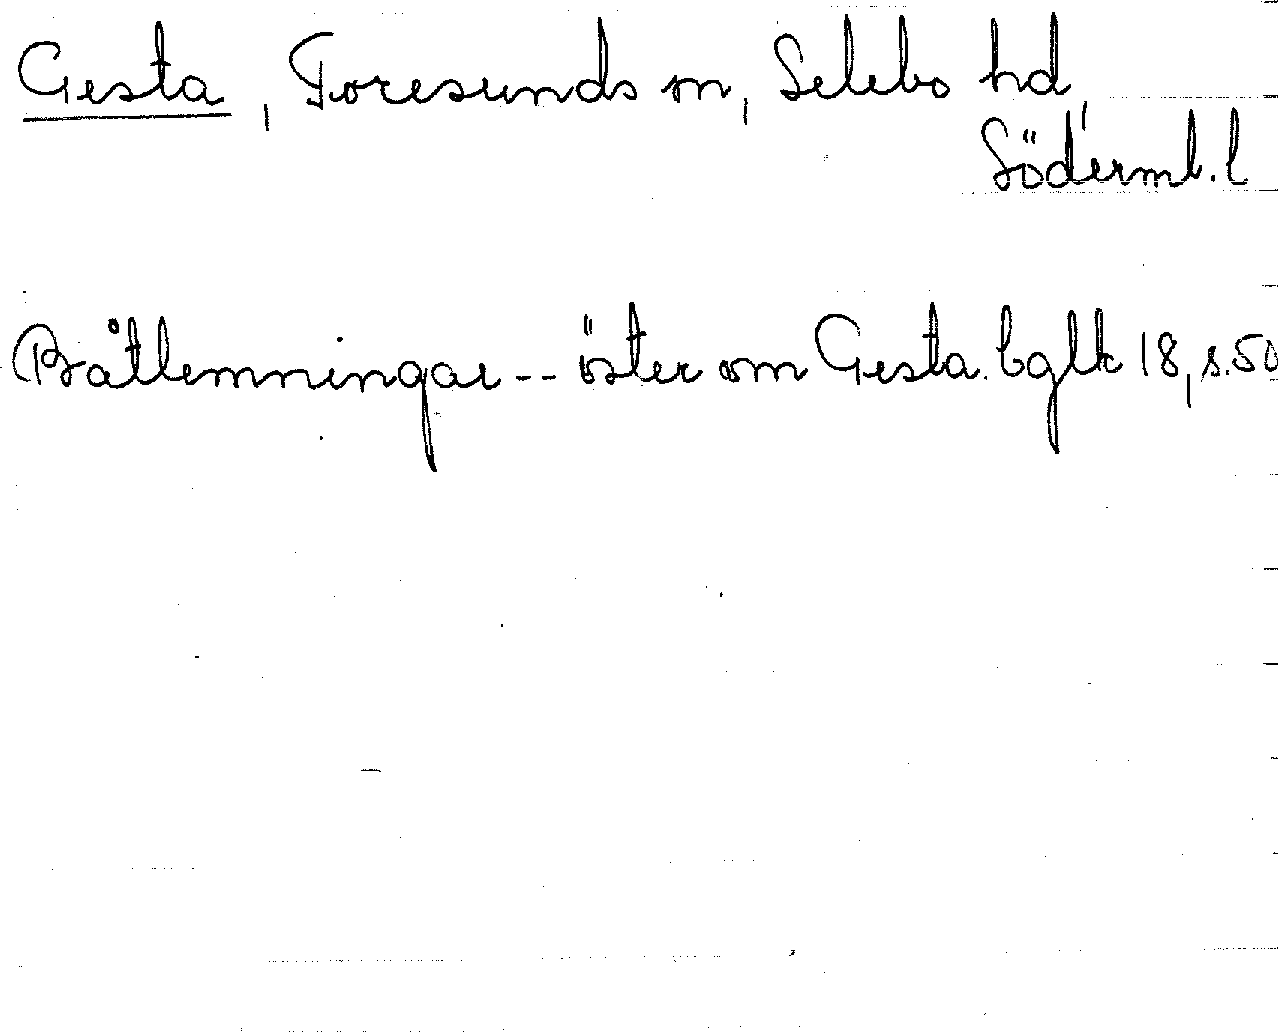 Gesta, Toresunds sn, Selebo hd,
Söderml. l
Båtlemningar -- öster om Gesta. bglk 18, s. 50